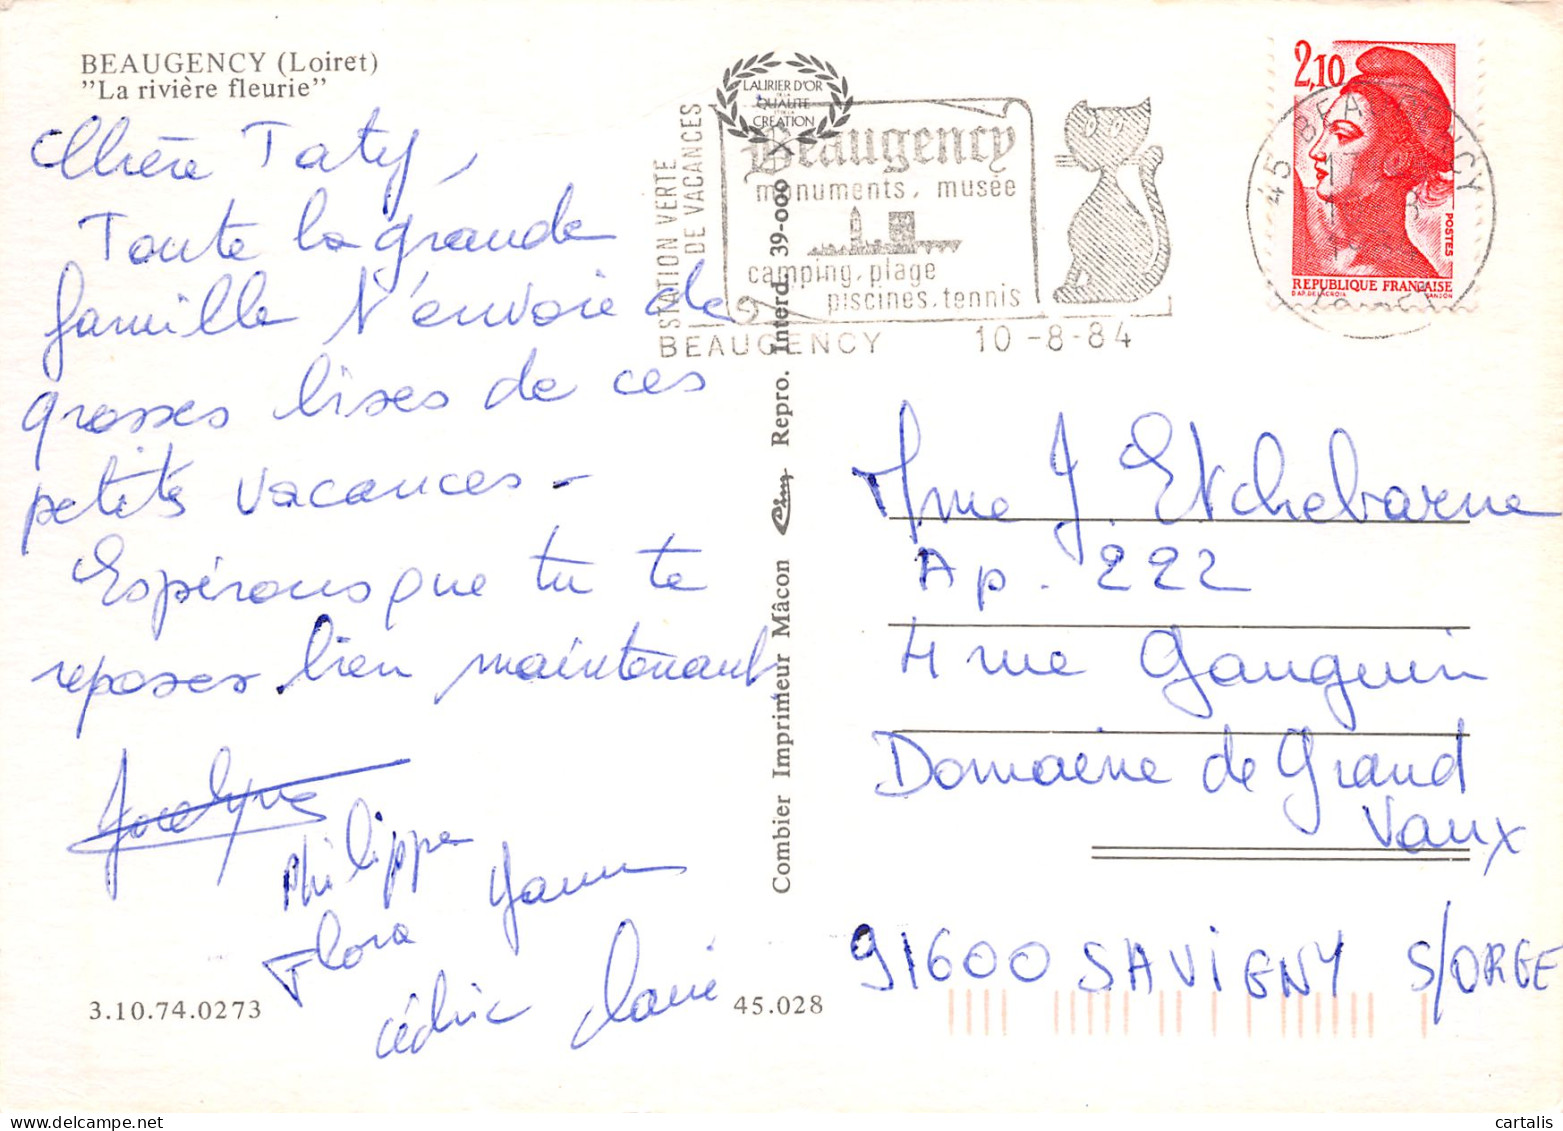 BEAUGENCY (Loiret)
"La rivière fleurie"
Chère Taty,
Toute la grande
famille t'envoie de
grosses bises de ces
petits vacances -
Espérons que tu te
reposes bien maintenant
Jocelyne
Philippe
Yann
Flora
Cédric
3.10.74.0273
45.028
Combier Imprimeur Mâcon Cim Repro. Interd. 39-000
LAURIER D'OR
DE LA
QUALITE
DE LA
CREATION
STATION VERTE
DE VACANCES
Beaugency
monuments, musée
camping, plage
piscines, tennis
BEAUGENCY 10-8-84
2,10
POSTES
REPUBLIQUE FRANÇAISE
D'AP. DELACROIX GANDON
45 BEAUGENCY
LOIRET
Mme J. Etchebarne
Ap. 222
4 rue Gauguin
Domaine de Grand
Vaux
91600 SAVIGNY S/ORGE